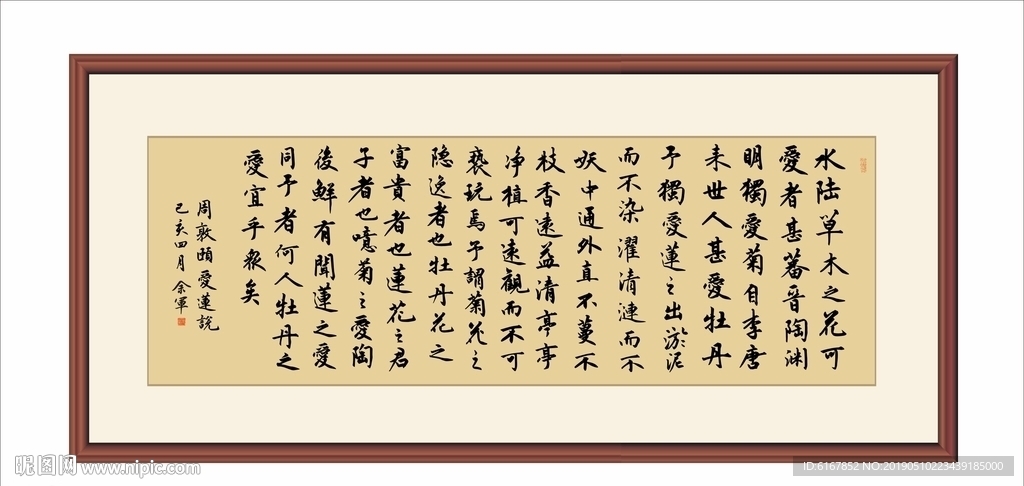 水陆草木之花可
愛者甚蕃晉陶渊
明獨愛菊自李唐
来世人甚愛牡丹
予獨愛蓮之出淤泥
而不染濯清漣而不
妖中通外直不蔓不
枝香遠益清亭亭
净植可遠觀而不可
褻玩焉予謂菊花之
隐逸者也牡丹花之
富貴者也蓮花之君
子者也噫菊之愛陶
後鮮有聞蓮之愛
同予者何人牡丹之
愛宜乎衆矣
周敦頤愛蓮説
己亥四月余軍
昵图网 www.nipic.com
ID:6167852 NO:20190510223439185000